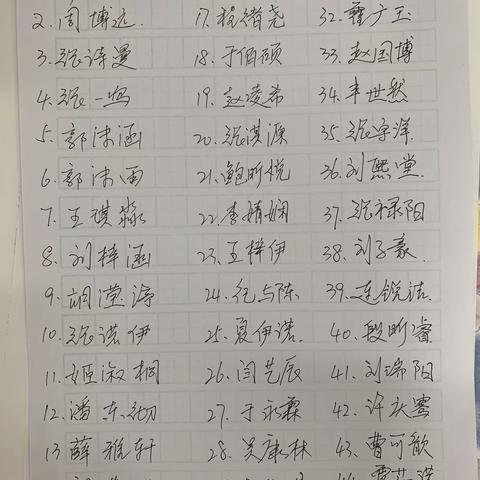 2. 周博远 17. 程绪尧 32. 薛广玉
3. 张诗曼 18. 于佰硕 33. 赵国博
4. 张一鸣 19. 赵凌希 34. 丰世然
5. 郭沫涵 20. 张淇源 35. 张宇洋
6. 郭沫雨 21. 鲍昕悦 36. 刘熙堂
7. 王琪淼 22. 李婧娴 37. 张禄阳
8. 刘梓涵 23. 王梓伊 38. 刘子豪
9. 胡滢涛 24. 纪与陈 39. 连锐洁
10. 张诺伊 25. 夏伊诺 40. 段昕睿
11. 姬淑桐 26. 闫艺辰 41. 刘瑞阳
12. 潘东 27. 于永霖 42. 许
13 薛雅轩 28. 吴康林 43. 曹可歆